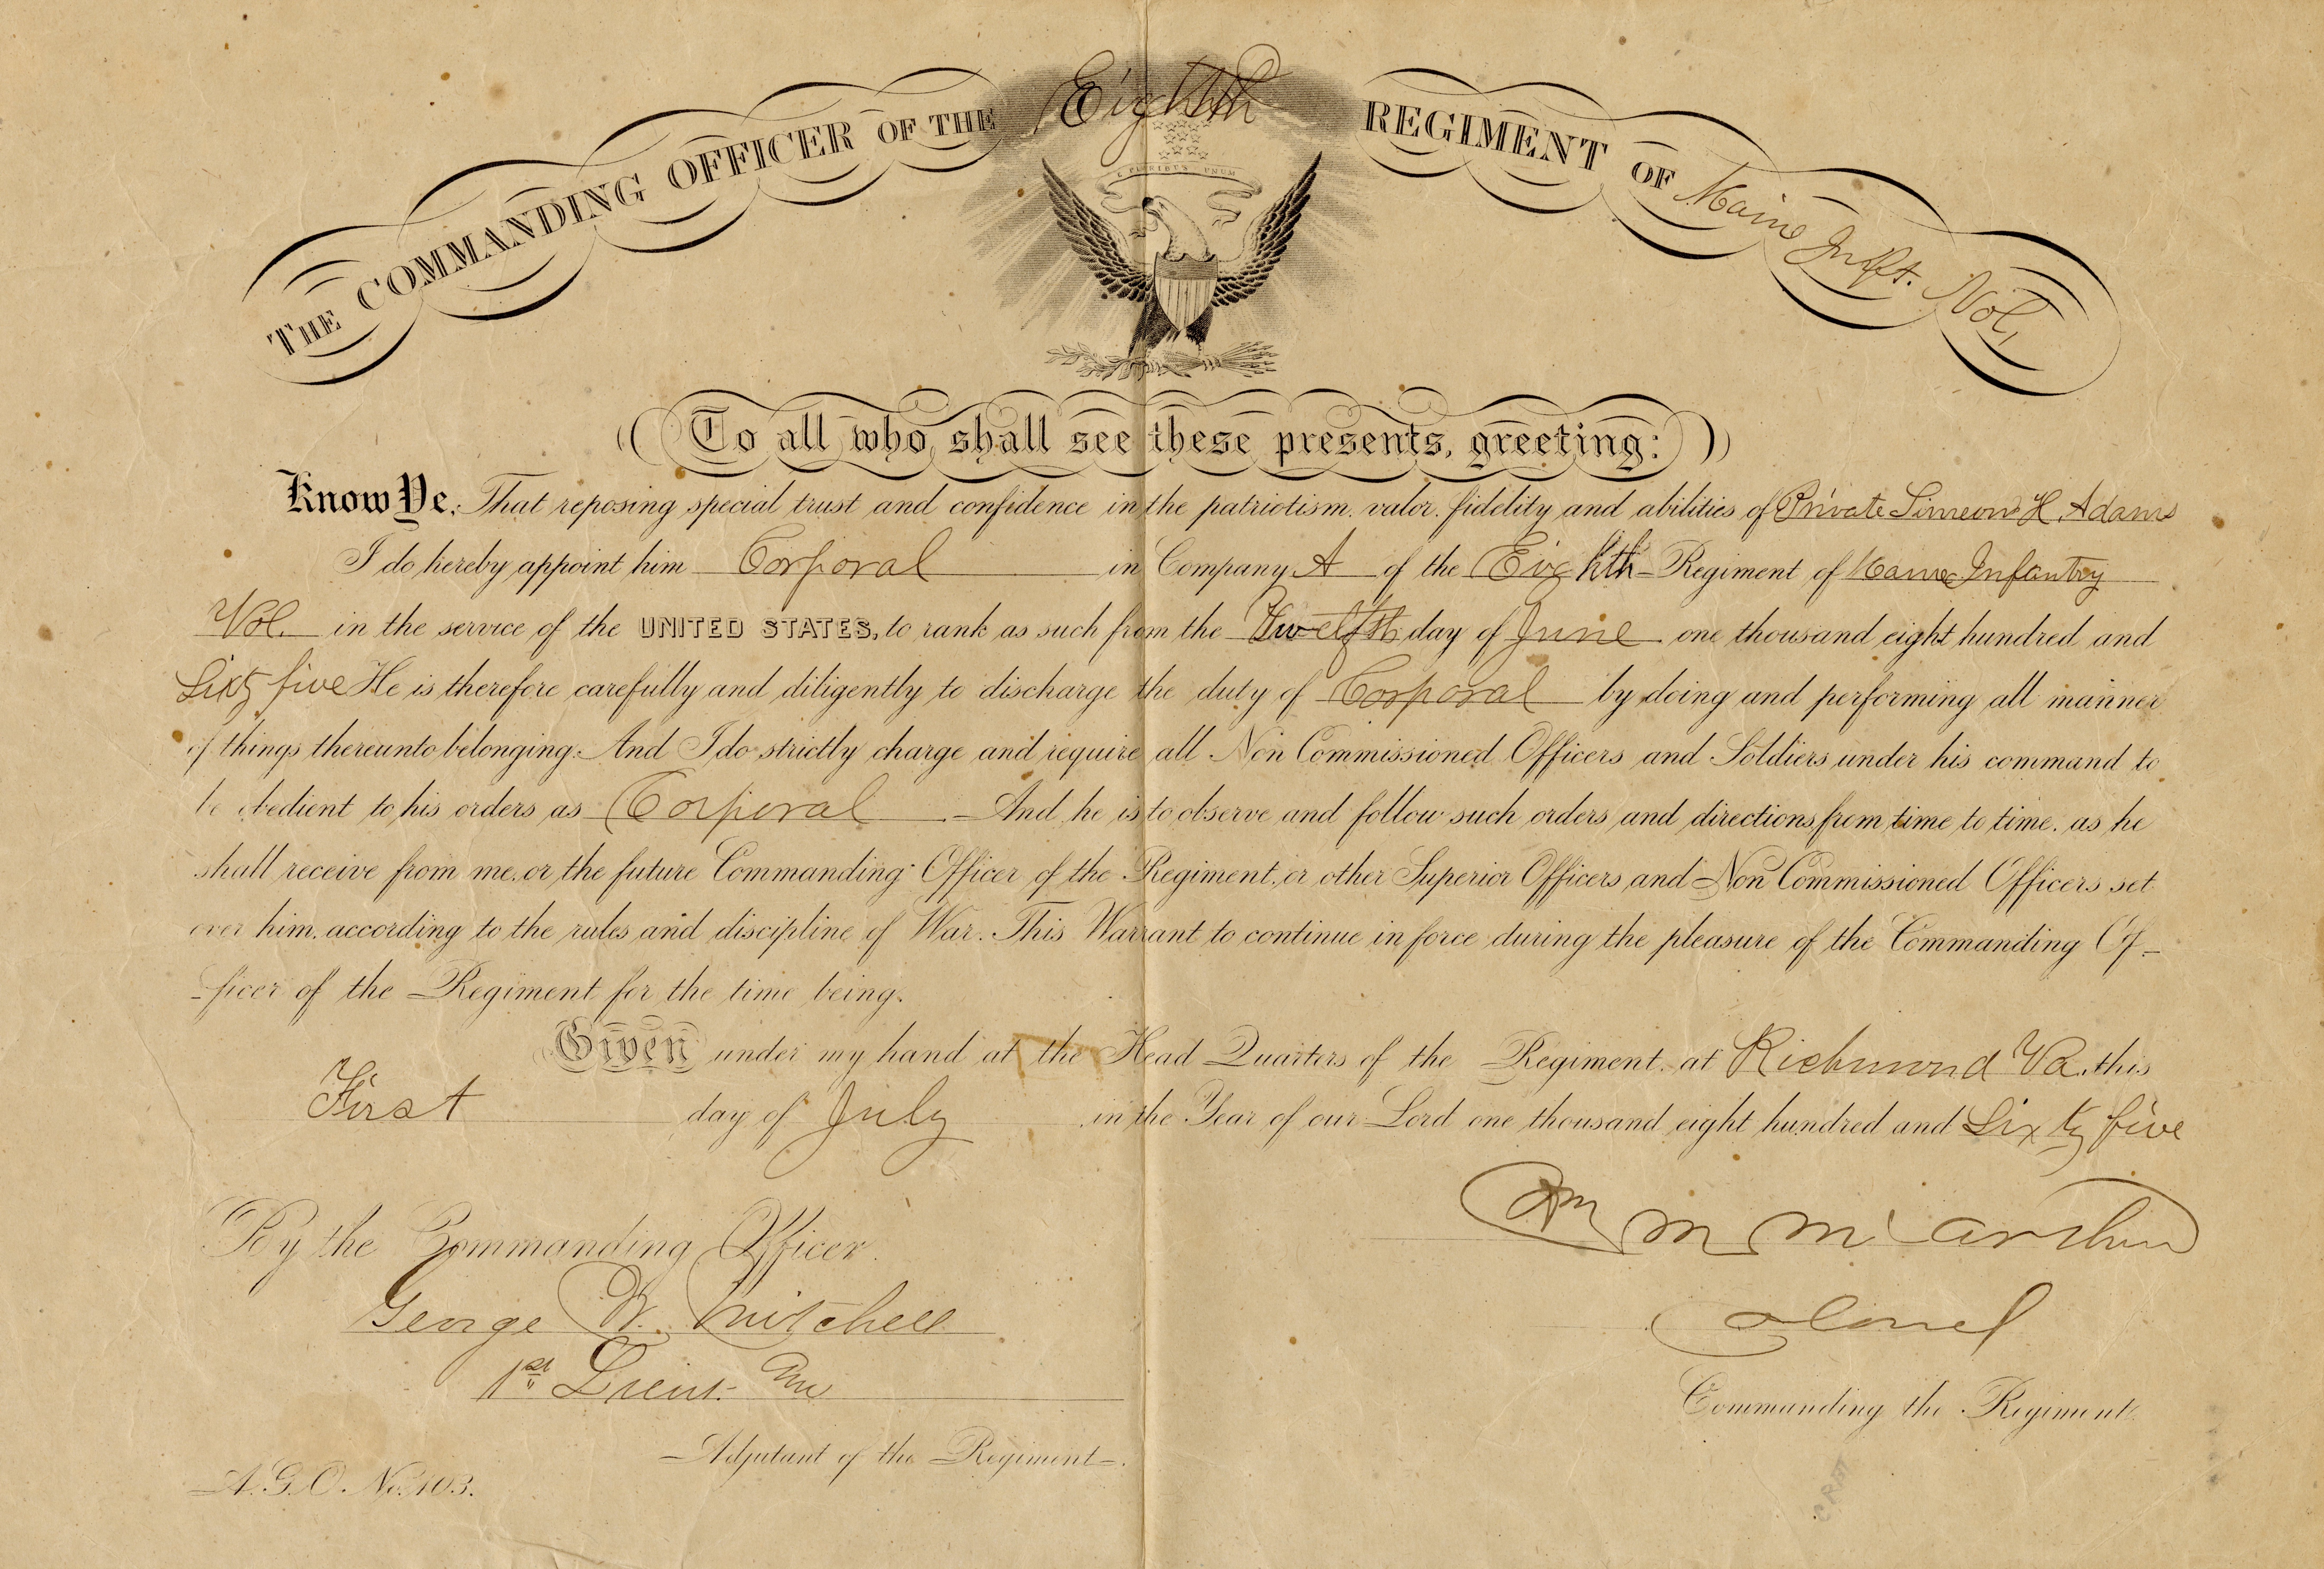 THE COMMANDING OFFICER OF THE Eighth REGIMENT OF Maine Inft. Vol.
E PLURIBUS UNUM
To all who shall see these presents, greeting:
Know Ye, That reposing special trust and confidence in the patriotism, valor, fidelity and abilities of Private Simeon H. Adams
I do hereby appoint him Corporal in Company A of the Eighth Regiment of Maine Infantry
Vol. in the service of the UNITED STATES, to rank as such from the Twelfth day of June one thousand eight hundred and
Sixty five He is therefore carefully and diligently to discharge the duty of Corporal by doing and performing all manner
of things thereunto belonging. And I do strictly charge and require all Non Commissioned Officers and Soldiers under his command to
be obedient to his orders as Corporal And he is to observe and follow such orders and directions from time to time, as he
shall receive from me, or the future Commanding Officer of the Regiment, or other Superior Officers and Non Commissioned Officers set
over him, according to the rules and discipline of War. This Warrant to continue in force during the pleasure of the Commanding Of-
-ficer of the Regiment for the time being.
Given under my hand at the Head Quarters of the Regiment, at Richmond Va. this
First day of July in the Year of our Lord one thousand eight hundred and Sixty five
Wm M McArthur
Colonel
Commanding the Regiment.
By the Commanding Officer.
George W. Mitchell
1st Lieut.
Adjutant of the Regiment.
A.G.O. No. 103.